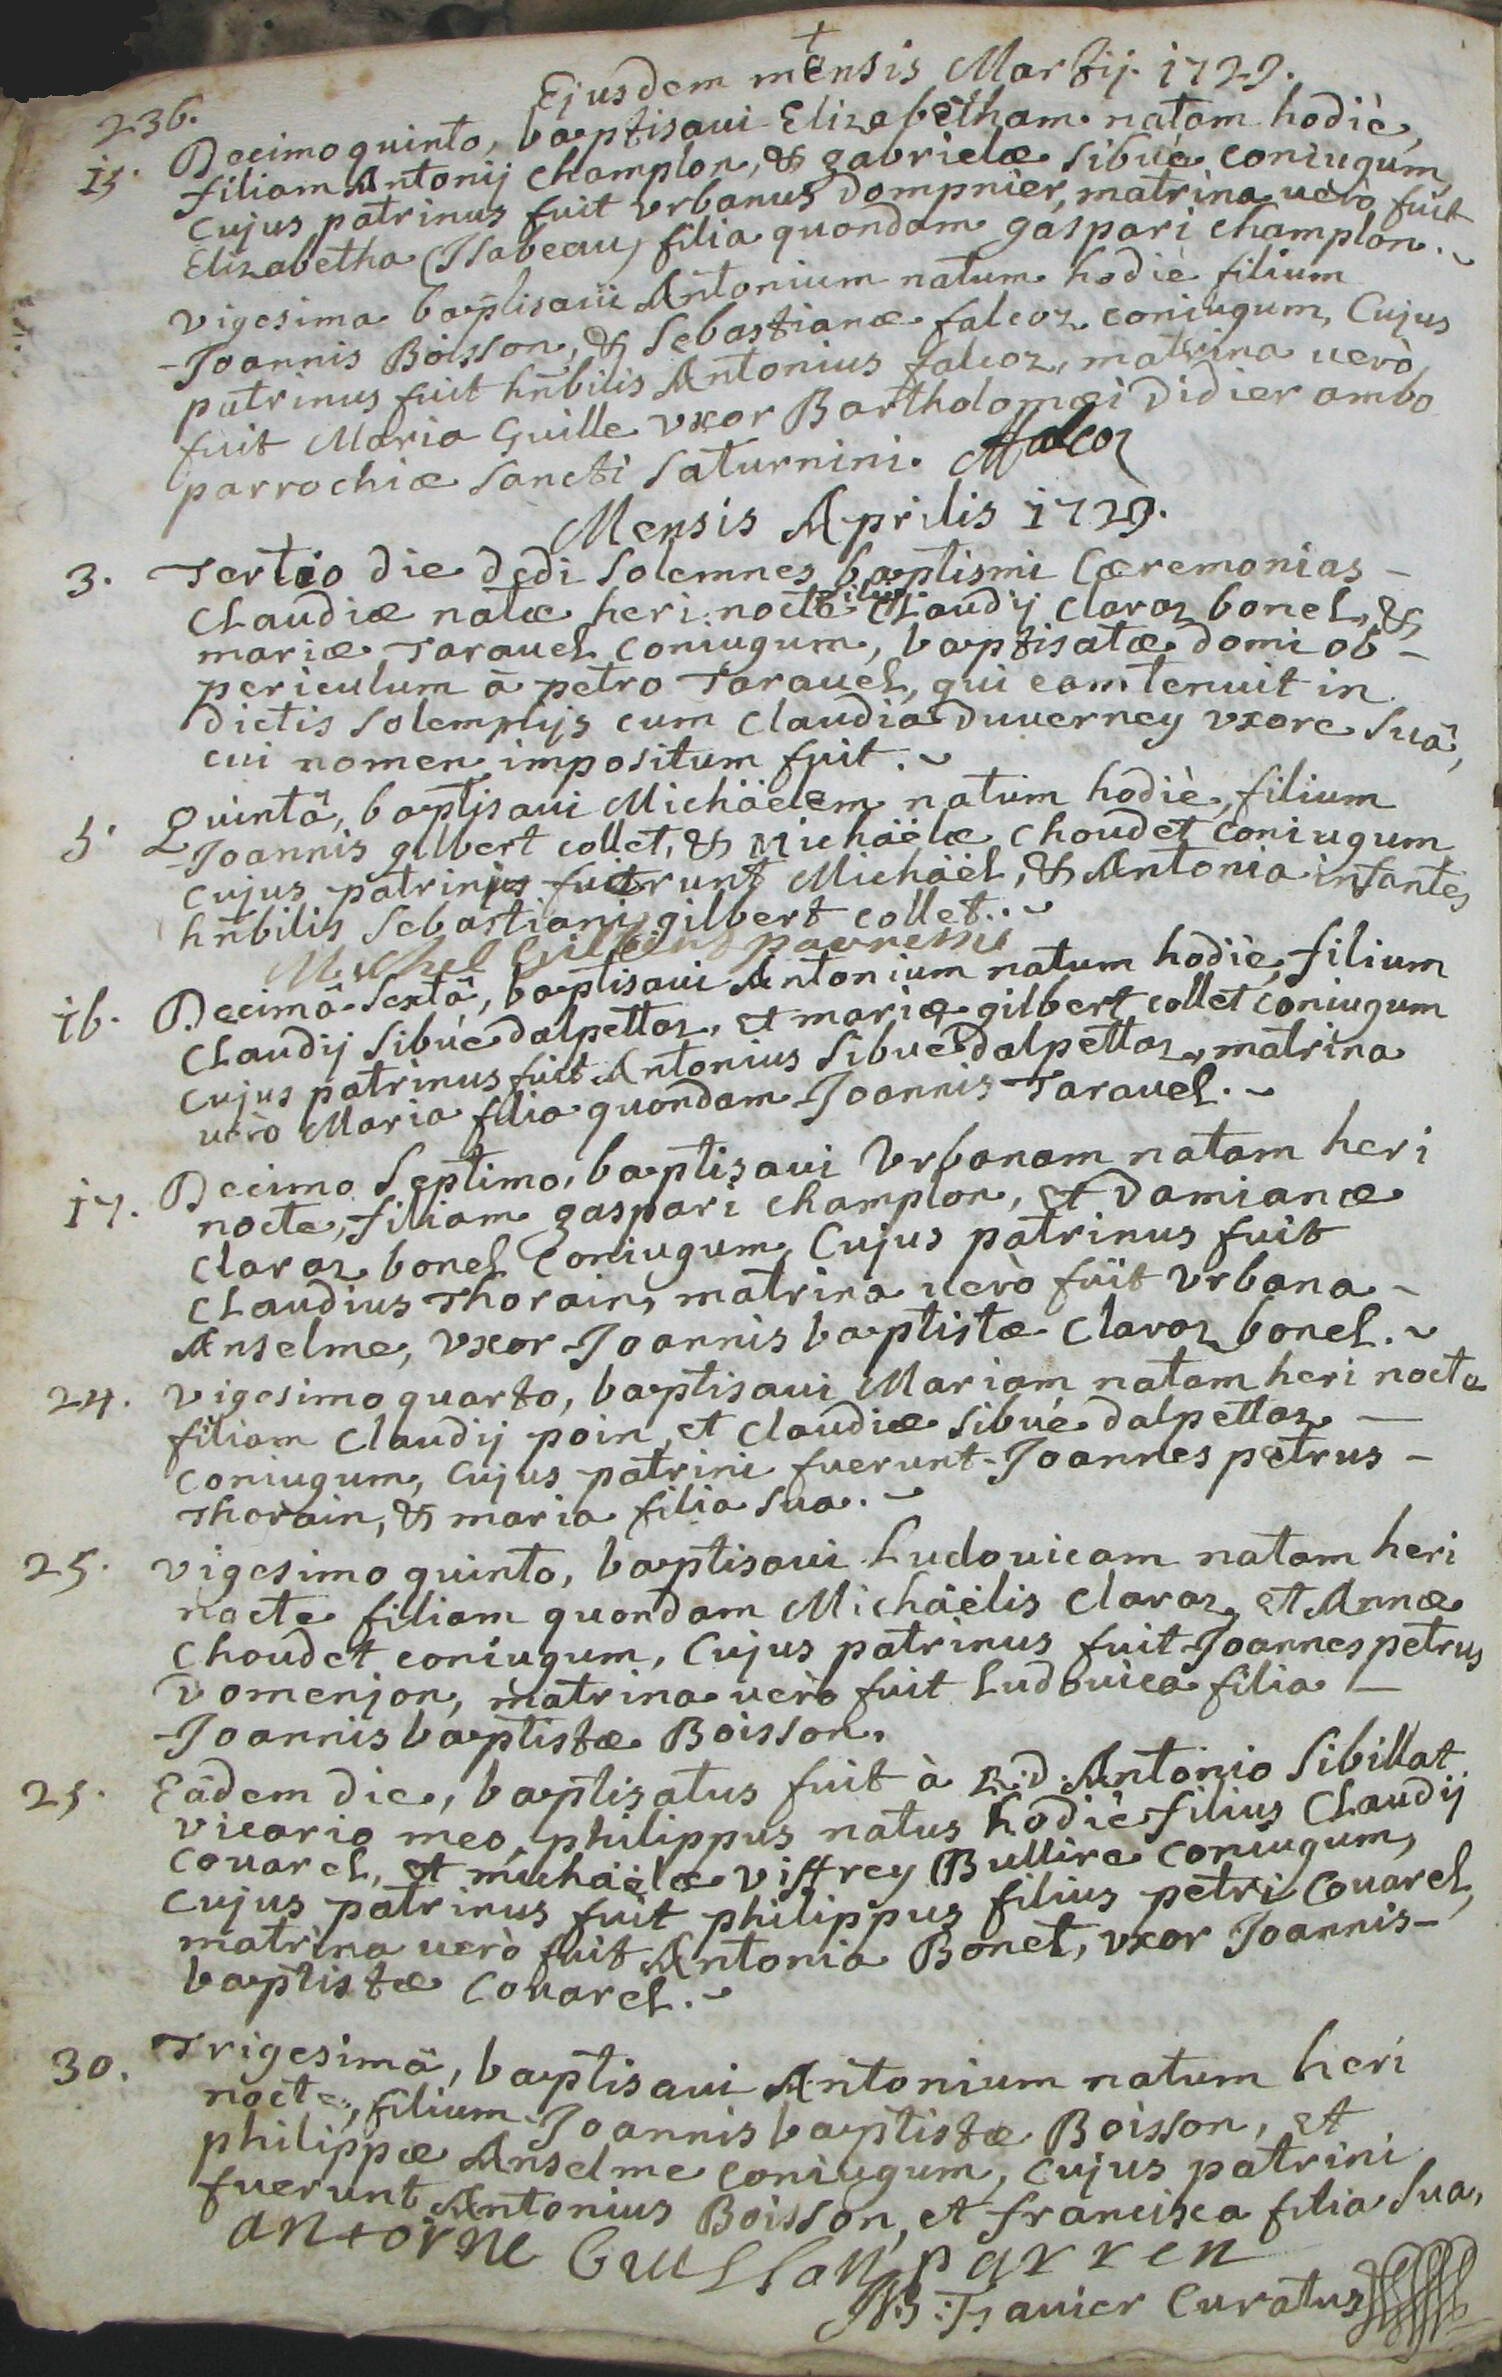 †
Ejusdem mensis Martij. 1729.
236.
15. Decimo quinto, baptisaui Elizabetham natam hodiè,
filiam Antonij Champlon, & gabrielæ Sibué coniugum,
Cujus patrinus fuit vrbanus Dompnier, matrina uerò fuit
Elizabetha (Isabeau) filia quondam gaspari Champlon.
vigesima baptisaui Antonium natum hodiè filium
Joannis Boisson, & Sebastianæ falcoz coniugum, Cujus
patrinus fuit hñbilis Antonius falcoz, matrina uerò
fuit Maria Guille vxor Bartholomæi Didier ambo
parrochiæ Sancti Saturnini. Afalcoz
Mensis Aprilis 1729.
3. Tertio die dedi Solemnes baptismi Cæremonias -
Claudiæ natæ heri nocte filiæ Claudij claraz bonel, &
mariæ Tarauel coniugum, baptisatæ domi ob -
periculum à petro Tarauel, qui eam tenuit in
dictis Solemnijs cum Claudia Duuerney vxore Suâ,
cui nomen impositum fuit.
5. Quintâ, baptisaui Michäelem natum hodiè, filium
Joannis gilbert collet, & Michäëlæ Choudet coniugum
Cujus patrini fuerunt Michäël, & Antonia infantes
hñbilis Sebastiani gilbert collet..
Michel Gilbert parressi
16. Decimâ Sextâ, baptisaui Antonium natum hodiè, filium
Claudij Sibué dalpettaz, et mariæ gilbert collet coniugum
Cujus patrinus fuit Antonius Sibué dalpettaz, matrina
uerò Maria filia quondam Joannis Tarauel.
17. Decimo Septimo, baptisaui Vrbanam natam heri
nocte, filiam gaspari Champlon, et Damianæ
Claraz bonel Coniugum, Cujus patrinus fuit
Claudius Thorain, matrina uerò fuit Vrbana -
Anselme, vxor Joannis baptistæ Claraz bonel.
24. vigesimo quarto, baptisaui Mariam natam heri nocte
filiam Claudij poin, et Claudiæ Sibué dalpettaz —
Coniugum, Cujus patrini fuerunt Joannes petrus -
Thorain, & maria filia Sua.
25. vigesimo quinto, baptisaui Ludouicam natam heri
nocte filiam quondam Michäëlis Claraz, et Annæ
Choudet coniugum, Cujus patrinus fuit Joannes petrus
Domenjon, matrina uerò fuit Ludouica filia —
Joannis baptistæ Boisson.
25. Eâdem die, baptisatus fuit à R:d. Antonio Sibillat
vicario meo, philippus natus hodiè filius Claudij
Couarel, et michäëlæ viffrey Bullire coniugum,
Cujus patrinus fuit philippus filius petri Couarel,
matrina uerò fuit Antonia Bonet, vxor Joannis-
baptistæ Couarel.
30. Trigesimâ, baptisaui Antonium natum heri
nocte, filium Joannis baptistæ Boisson, et
philippæ Anselme coniugum, cujus patrini
fuerunt Antonius Boisson, et francisca filia Sua,
antoine parren
Curatus